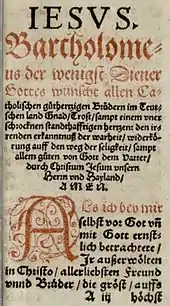 IESVS.
Bartholome-
us der wenigst Diener
Gottes wünscht allen Ca-
tholischen gůtherzigen Brůdern im Teut-
schen land Gnad/Trost/ sampt einem vner
schrocknen standthafftigen hertzen: den ir-
renden erkantnuß der warheit/ widerkö-
rung auff den weg der seligkeit/ sampt
allem gůten von Gott dem Vatter/
durch Christum Jesum vnsern
Herrn vnd Hayland/
A M E N.
Als ich bey mir
selbst vor Got vñ
mit Gott ernst-
lich betrachtete/
Jr außerwölten
in Christo/ allerliebsten Freund
vnnd Brůder/ die größt/ auffs
A iij höchst